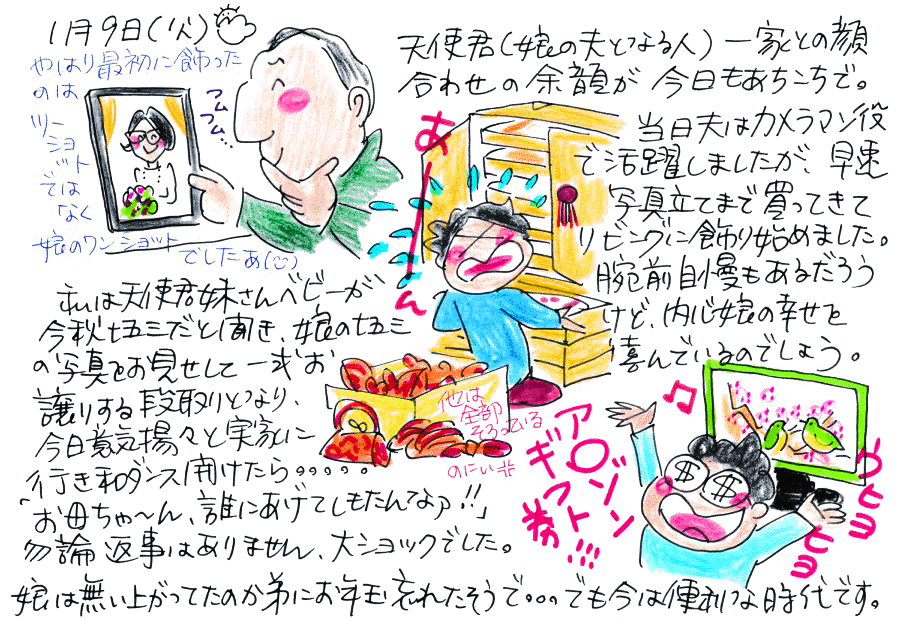 1月9日(火)
やはり最初に飾った
のは
ツー
ショ
ット
では
なく
娘のワンショット
でしたぁ(
フムフム…
天使君(娘の夫となる人)一家との顔
合わせの余韻が今日もあちこちで。
当日夫はカメラマン役
で活躍しましたが、早速
写真立てまで買ってきて
リビングに飾り始めました。
腕前自慢もあるだろう
けど、内心娘の幸せを
喜んでいるのでしょう。
あーーん
私は天使君妹さんベビーが
今秋七五三だと聞き、娘の七五三
の写真をお見せして一式お
譲りする段取りとなり、
今日意気揚々と実家に
行き和ダンス開けたら。。。。。。
「お母ちゃ〜ん、誰にあげてしもたんでよ?!!」
勿論返事はありません、大ショックでした。
他は
全部
そろっている
のにぃ
アマゾン
ギフト
券!!!
♪
$ $
ウヒョ
ヒョ
娘は舞い上がってたのか弟にお年玉忘れたそうで。。。でも今は便利な時代です。